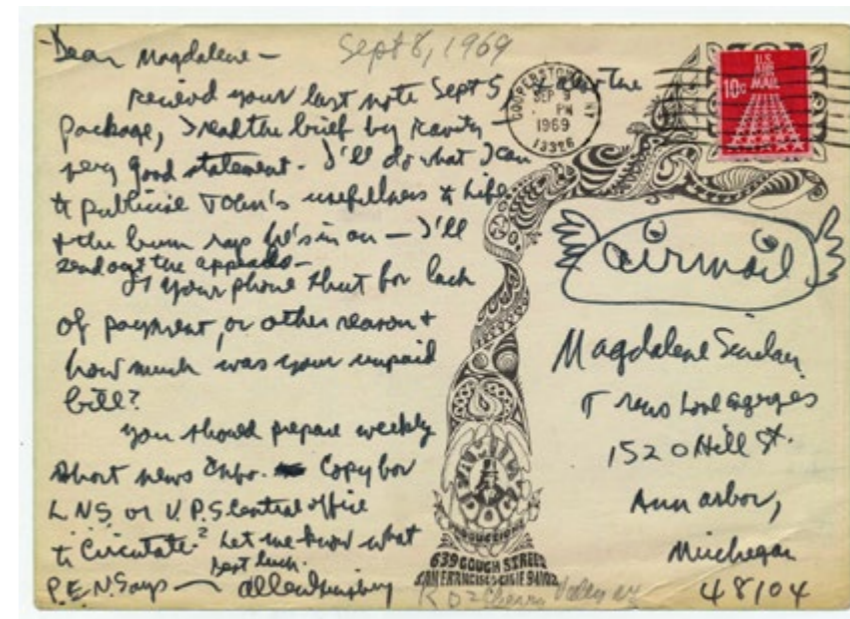 Dear Magdalene —
Sept 8, 1969
recievd your last note Sept 5, & after the
package, I read the brief by ravitz —
very good statement. I'll do what I can
to publicise John's usefullness & Life
& the bum rap he's in on — I'll
send out the appeals —
Is your phone shut for lack
of payment, or other reason &
how much was your unpaid
bill?
You should prepare weekly
short news info. copy for
LNS or U.P.S Central office
to Circulate? Let me know what
P.E.N. Says — best luck.
Allen Ginsberg
COOPERSTOWN NY
SEP 9
PM
1969
13326
U.S.
AIR
MAIL
10c
airmail
Magdalene Sinclair
Trans Love Energies
1520 Hill St.
Ann arbor,
Michegan
48104
PRODUCTIONS
639 GOUGH STREET
SAN FRANCISCO CALIF 94102
RD2 Cherry Valley NY